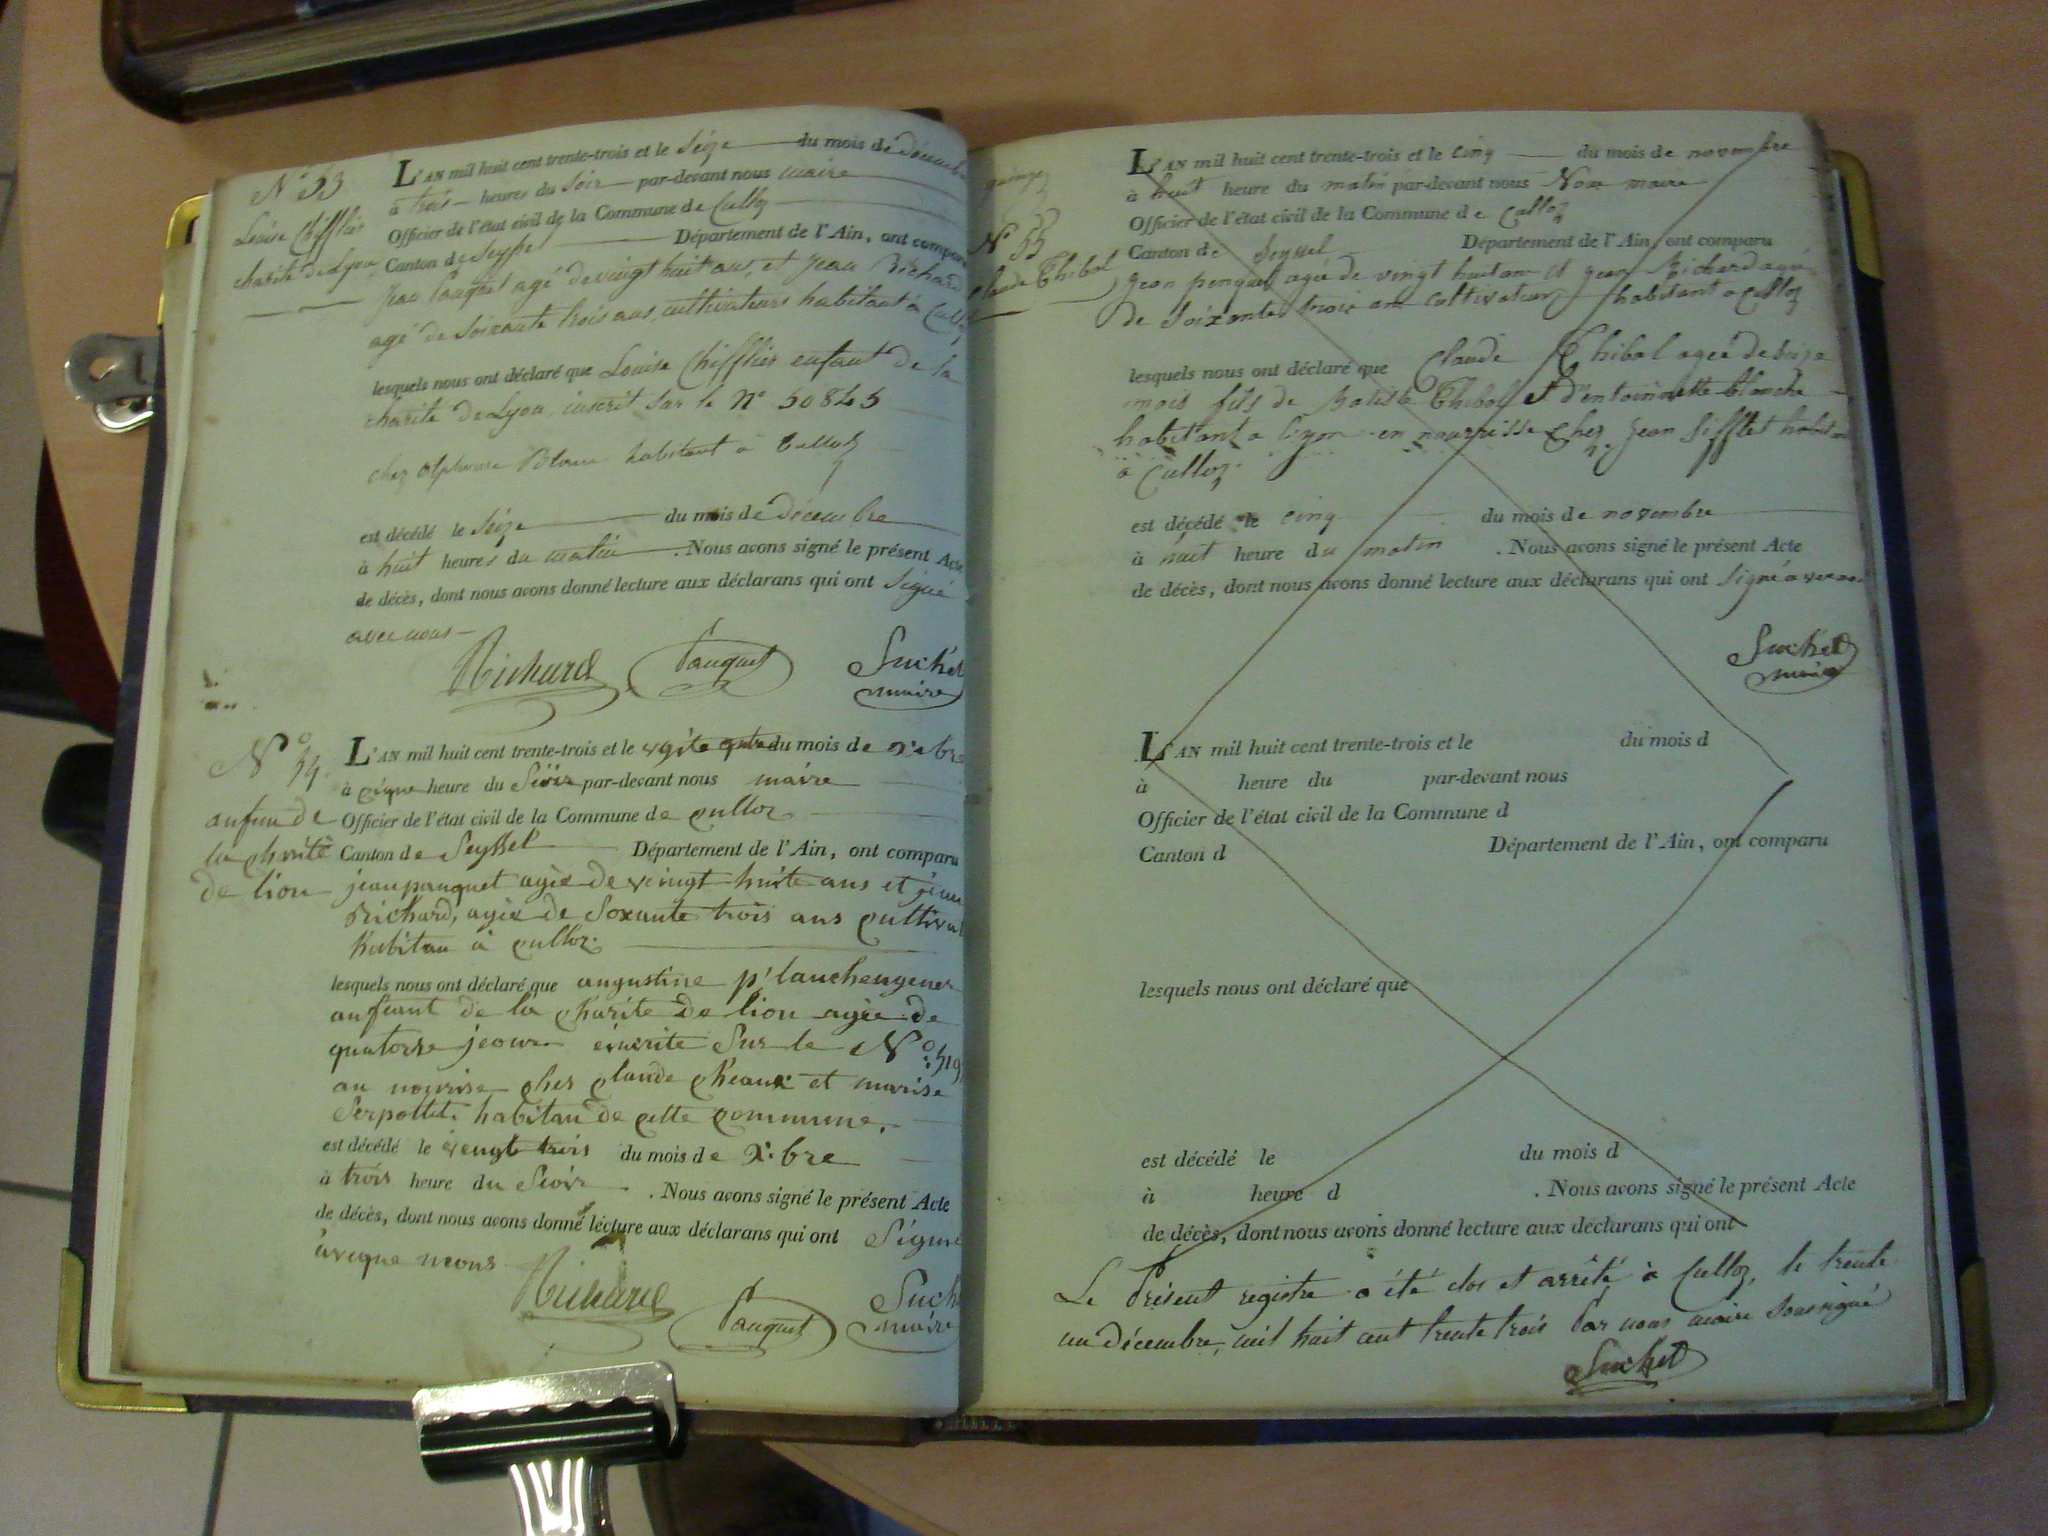 N° 53
Louise Chifflier
charité de Lyon
L'AN mil huit cent trente-trois et le Seize du mois de décembre
à trois heures du Soir par-devant nous maire
Officier de l'état civil de la Commune de Culloz
Canton de Seyssel Département de l'Ain, ont comparu
Jean Pauquet agé de vingt huit ans, et Jean Richard
agé de Soixante trois ans, cultivateurs habitant à Culloz
lesquels nous ont déclaré que Louise Chifflier enfant de la
charité de Lyon, inscrit sur le N° 50845
chez Alphonse Blanc habitant à Culloz
est décédé le Seize du mois de décembre
à huit heures du matin . Nous avons signé le présent Acte
de décès, dont nous avons donné lecture aux déclarans qui ont Signé
avec nous
Richard Pauquet Suchet
maire
N° 54
anfan de
la charité
de lion
L'AN mil huit cent trente-trois et le du mois de Xbre
à cinque heure du Seoir par-devant nous maire
Officier de l'état civil de la Commune de culloz
Canton de Seyssel Département de l'Ain, ont comparu
jean pauquet agée de veingt huite ans et jean
Richard, agée de Soxante trois ans cultivat
habitan à culloz.
lesquels nous ont déclaré que angustine
anfeant de la charite de lion agée de
quatorse jeour einerite Sur le N° 519
au nourise ches claude cheaux et marise
Serpollet habitan de cette commune,
est décédé le veengt trois du mois de X.bre
à trois heure du Seoir . Nous avons signé le présent Acte
de décès, dont nous avons donné lecture aux déclarans qui ont Signé
aveque neous
Richard Pauquet Such
maire
N° 55
Claude Thibol
L'AN mil huit cent trente-trois et le cinq du mois de novembre
à huit heure du matin par-devant nous Nou maire
Officier de l'état civil de la Commune de Culloz
Canton de Seyssel Département de l'Ain, ont comparu
Jean penquet agée de vingt huit an et jean Richard agée
de Soixante troie an cultivateur habitant a Culloz
lesquels nous ont déclaré que Claude Thibol agée de
mois fils de Batiste Thibol et d'entoinnette blanche
habitant a liyon en nourrisse chez jean Sifflet habitan
a Culloz.
est décédé le cinq du mois de novembre
à huit heure du matin . Nous avons signé le présent Acte
de décès, dont nous avons donné lecture aux déclarans qui ont Signé a vec nou
Suchet
maire
L'AN mil huit cent trente-trois et le du mois d
à heure du par-devant nous
Officier de l'état civil de la Commune d
Canton d Département de l'Ain, ont comparu
lesquels nous ont déclaré que
est décédé le du mois d
à heure d . Nous avons signé le présent Acte
de décès, dont nous avons donné lecture aux déclarans qui ont
Le Présent registre a été clos et arrêté à Culloz, le trente
un décembre, mil huit cent trente trois Par nous maire Soussigné
Suchet